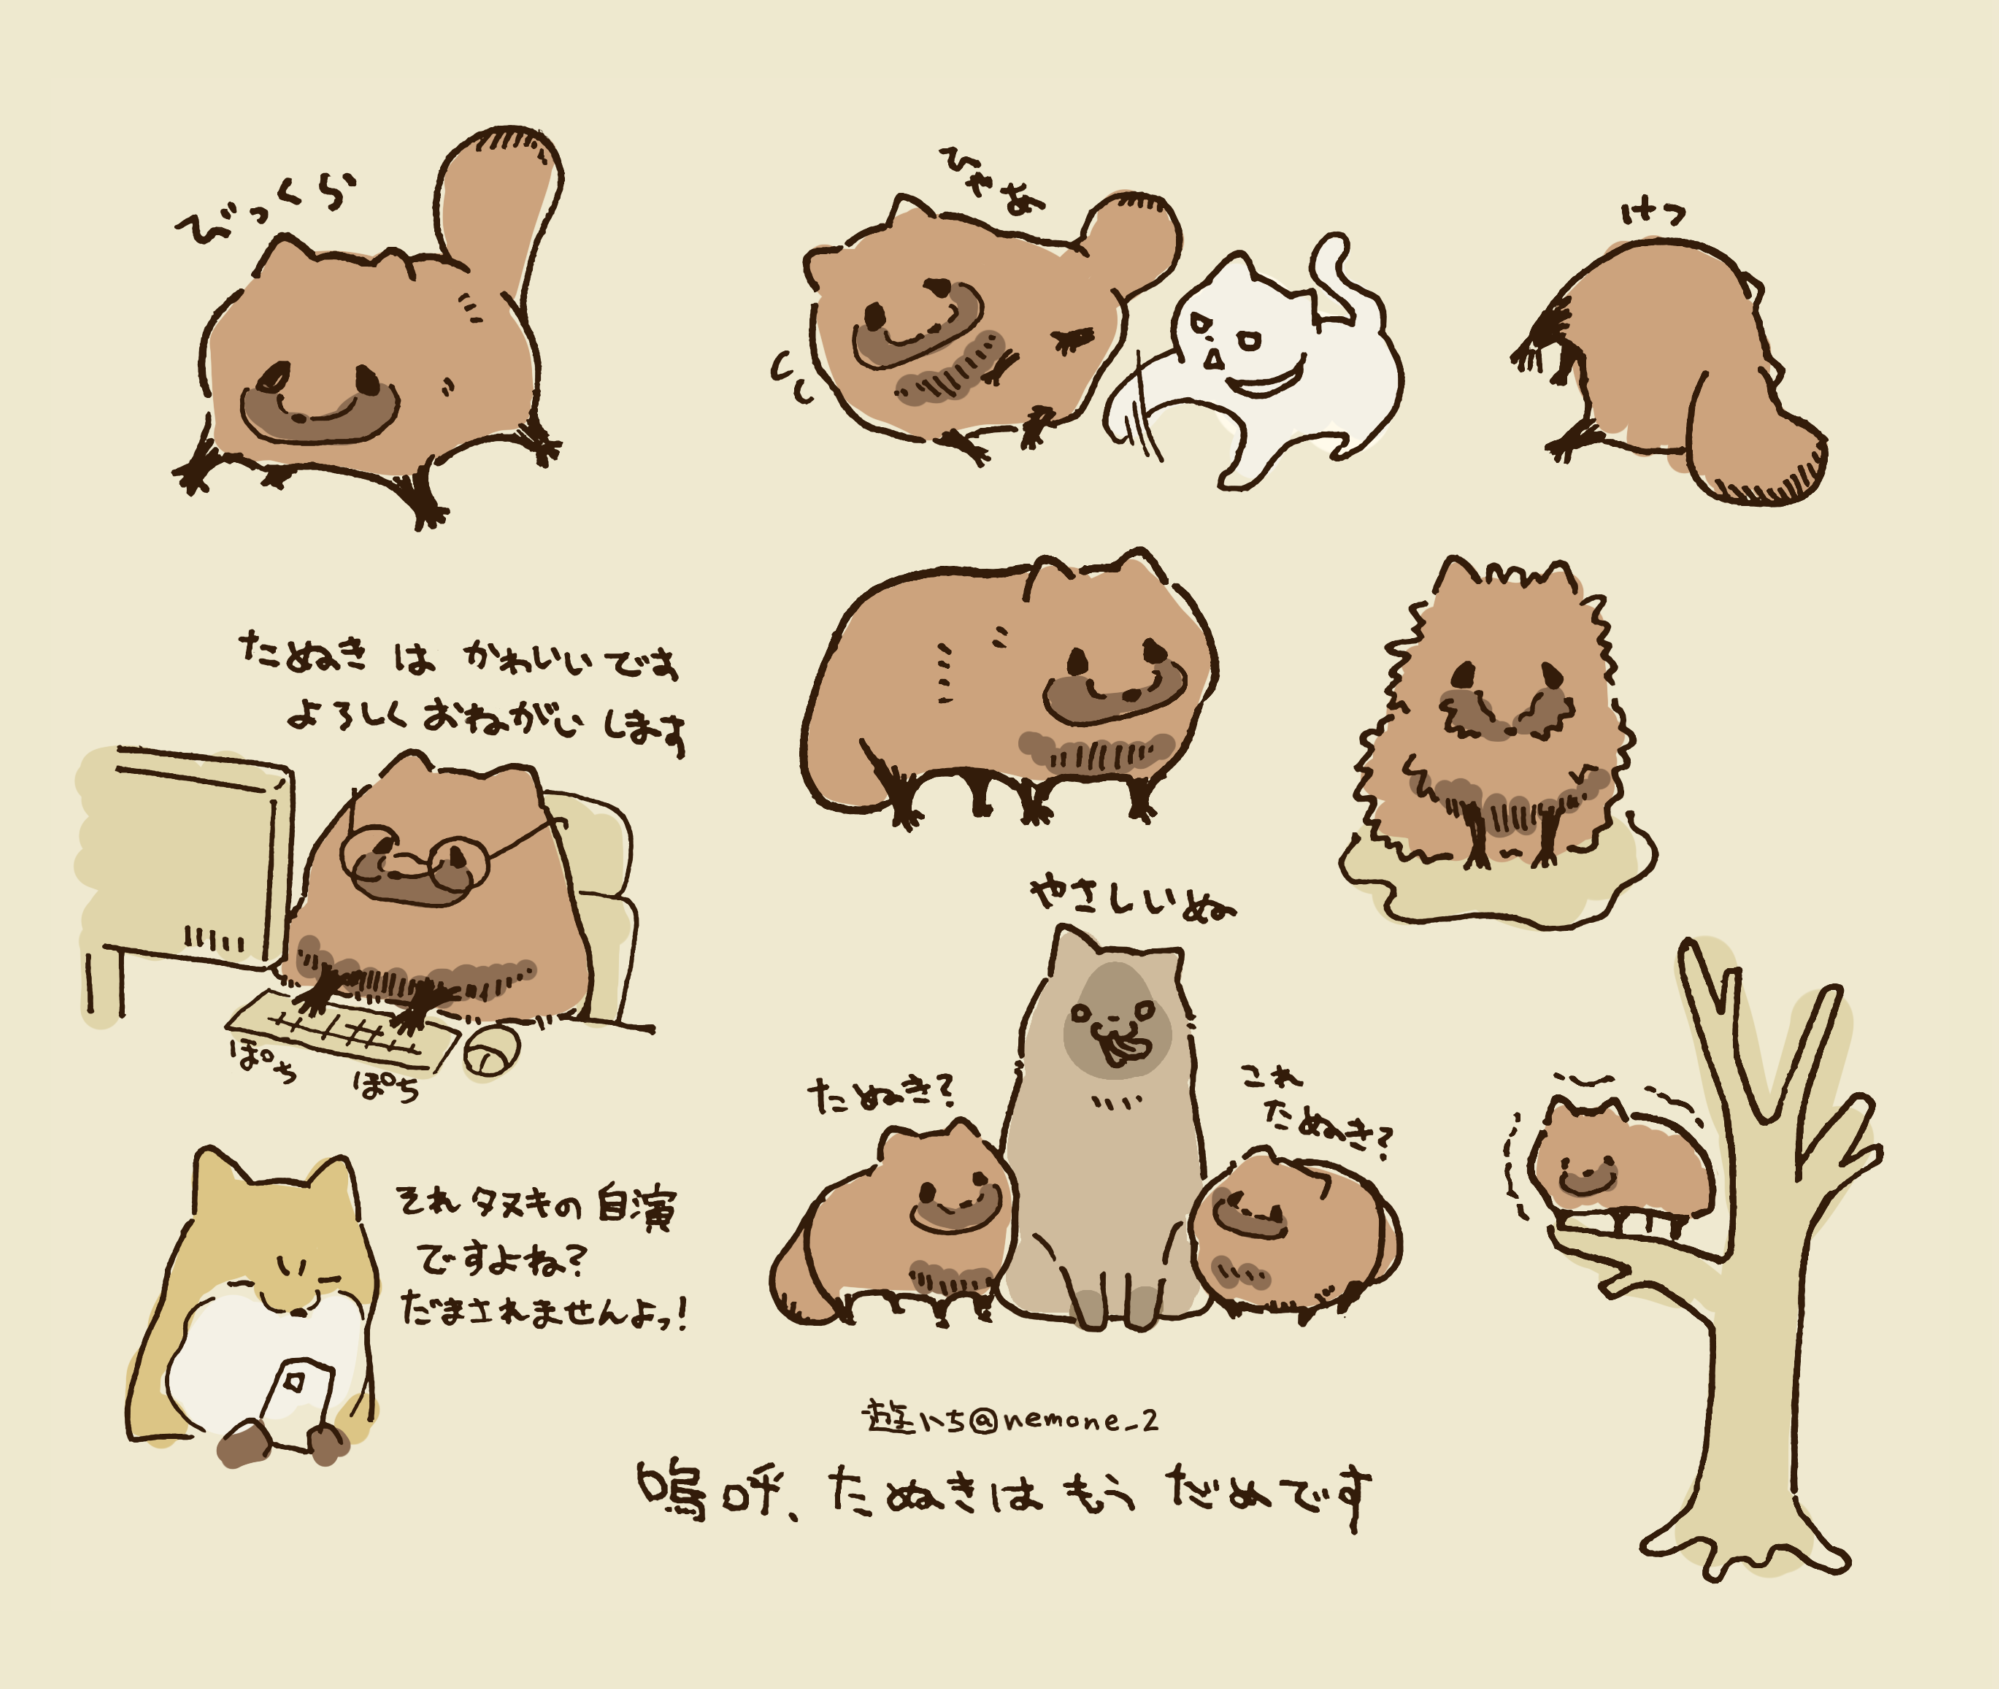 びっくら
ひゃあ
けつ
たぬきはかわいいです
よろしくおねがいします
ぽち
ぽち
やさしいぬ
たぬき?
これ
たぬき?
それタヌキの自演
ですよね?
だまされませんよっ!
遊いち@nemone_2
嗚呼、たぬきはもうだめです